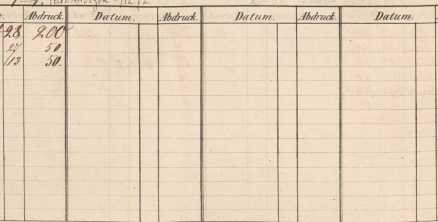 Abdruck. Datum. Abdruck. Datum. Abdruck. Datum.
28 200
27 50.
113 50.